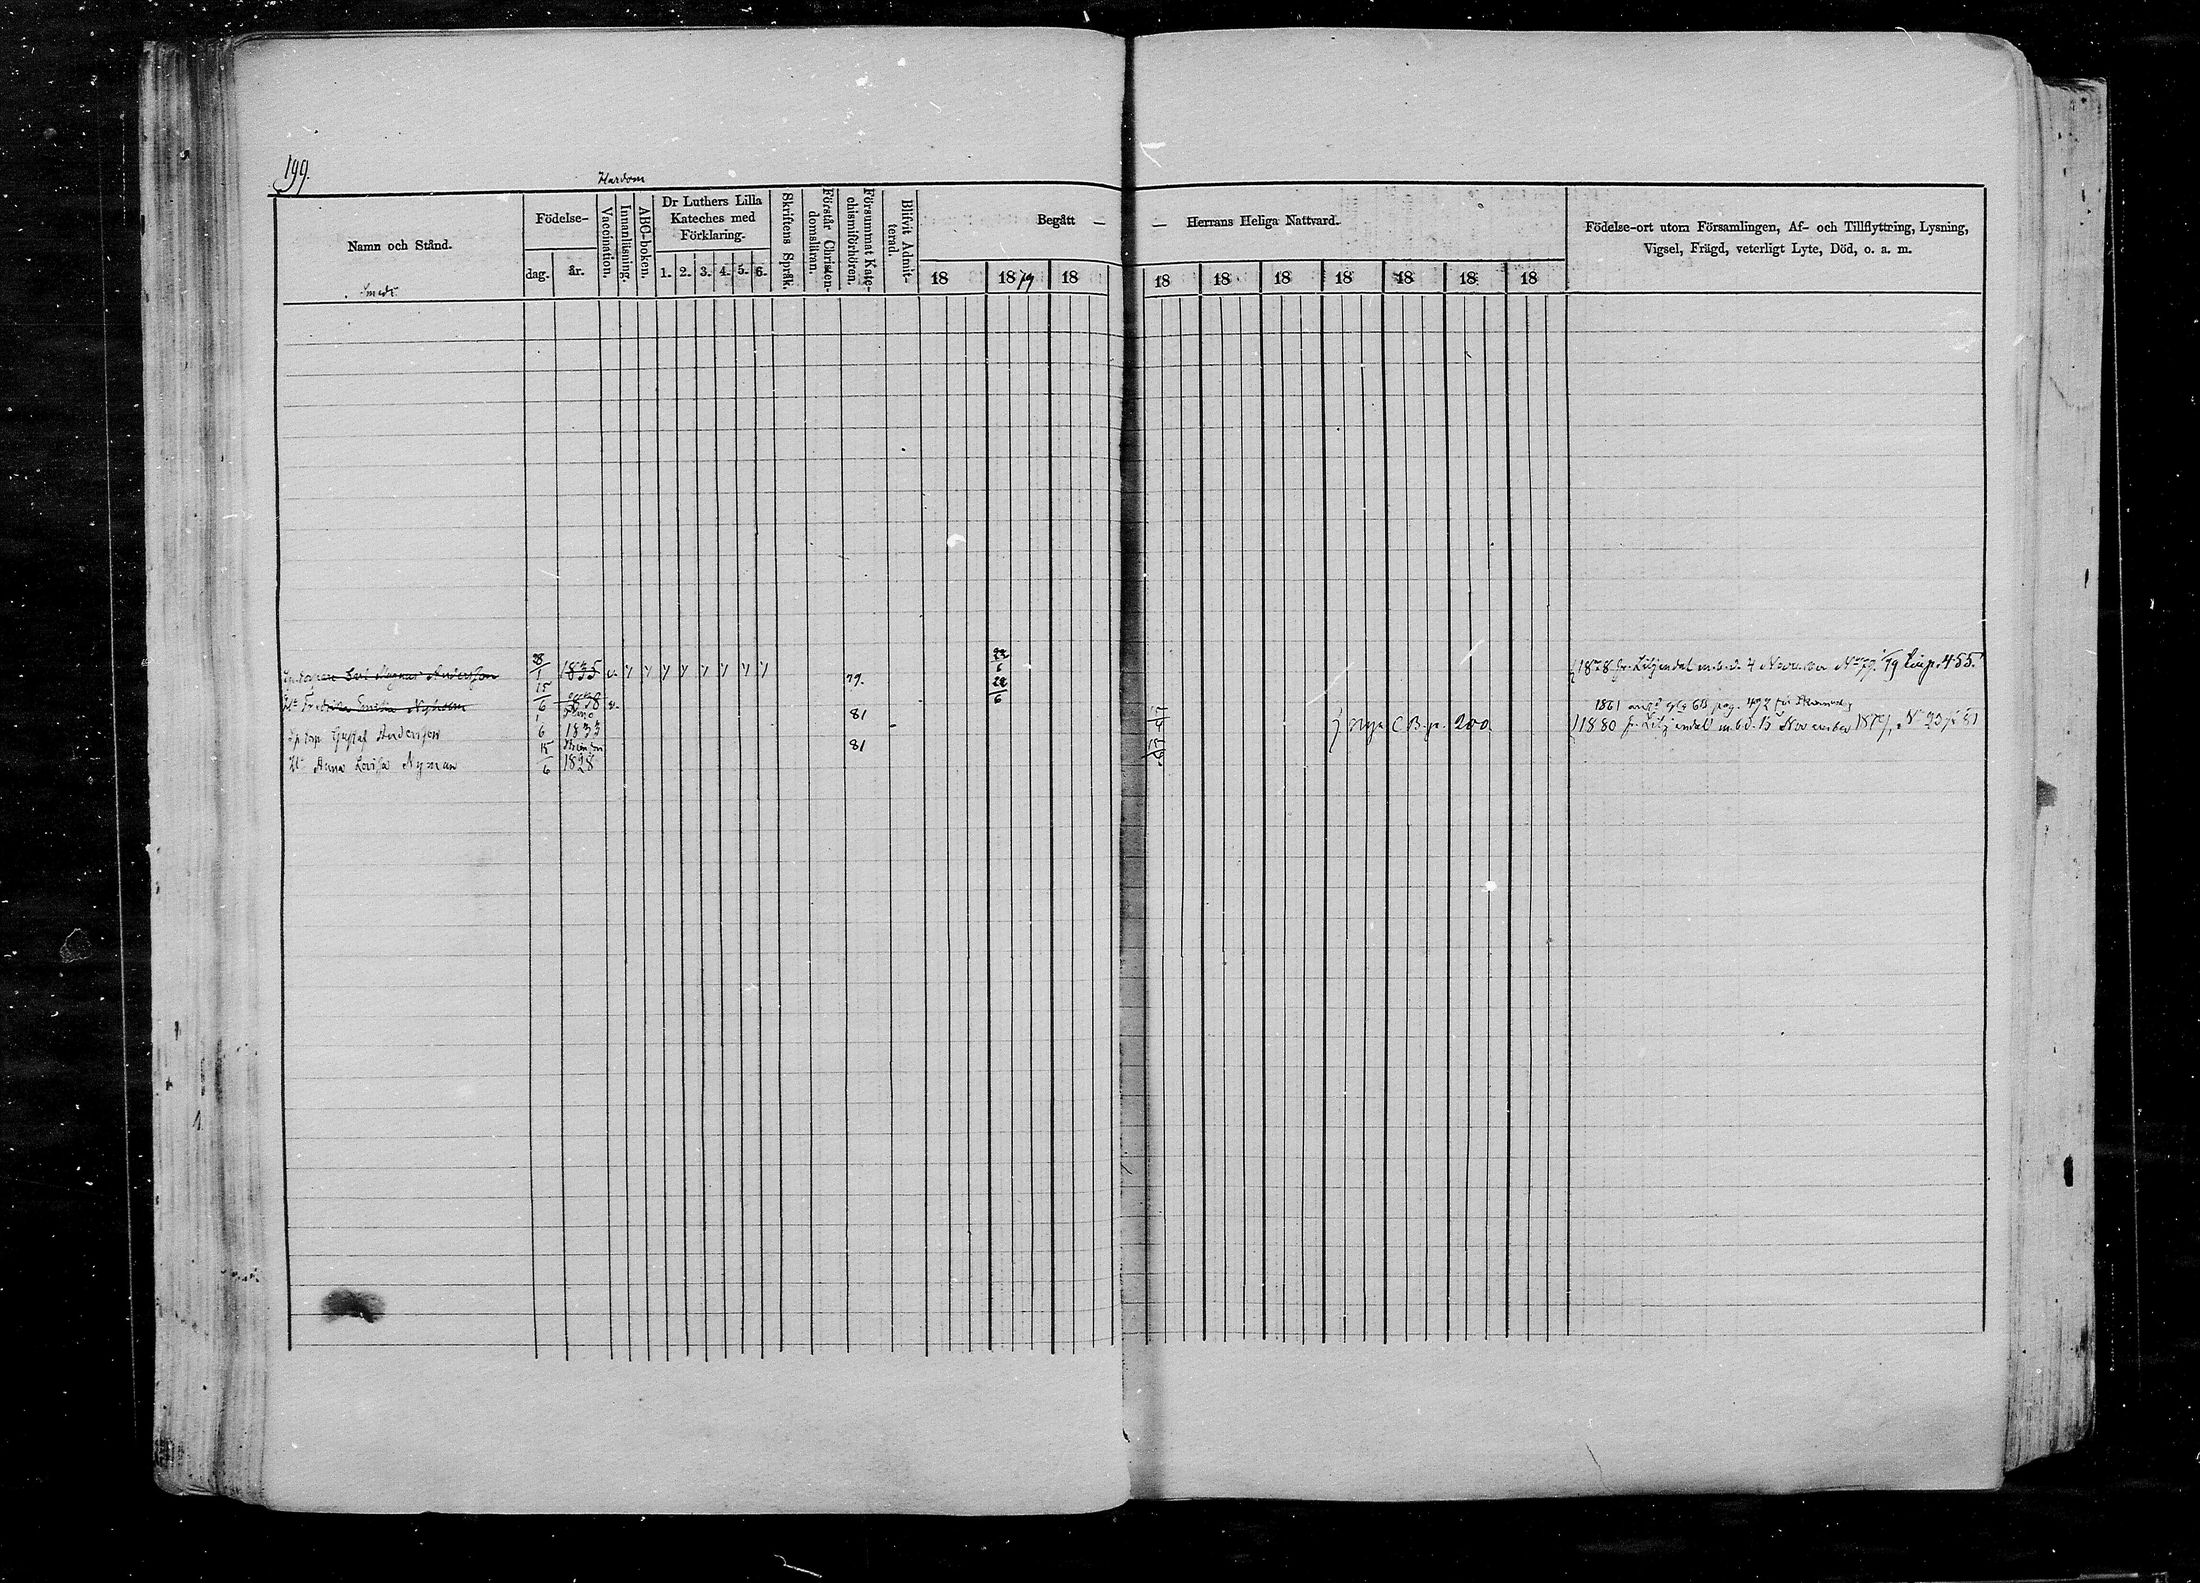 199.
Hardom
Namn och Stånd.
Födelse-
dag.
år.
Vaccination.
Innanläsning.
ABC-boken.
Dr Luthers Lilla
Kateches med
Förklaring.
1. 2. 3. 4. 5. 6.
Skriftens Språk.
Förstår Christen-
domsläran.
Försummat Kate-
chismiförhören.
Blifvit Admit-
terad.
Begått —
— Herrans Heliga Nattvard.
18 1879 18 18 18 18 18 18 18 18
Födelse-ort utom Församlingen, Af- och Tillflyttring, Lysning,
Vigsel, Frägd, veterligt Lyte, Död, o. a. m.
Carl Magnus Andersson 28/1 1835 v. 79. 22/6 1878 fr. Liljendal m. b. d. 4 November No 79. /79 p. 455.
Hu Fredrika Emilia Nyholm 15/6 1838 v. 22/6
1861 pag. 492
Gustaf Andersson 1/6 1833 81 Nya C. B. p. 200. 1880 fr. Liljendal m. b. d. 13 November 1879, No
Hu Anna Lovisa Nyman 15/6 1828 81